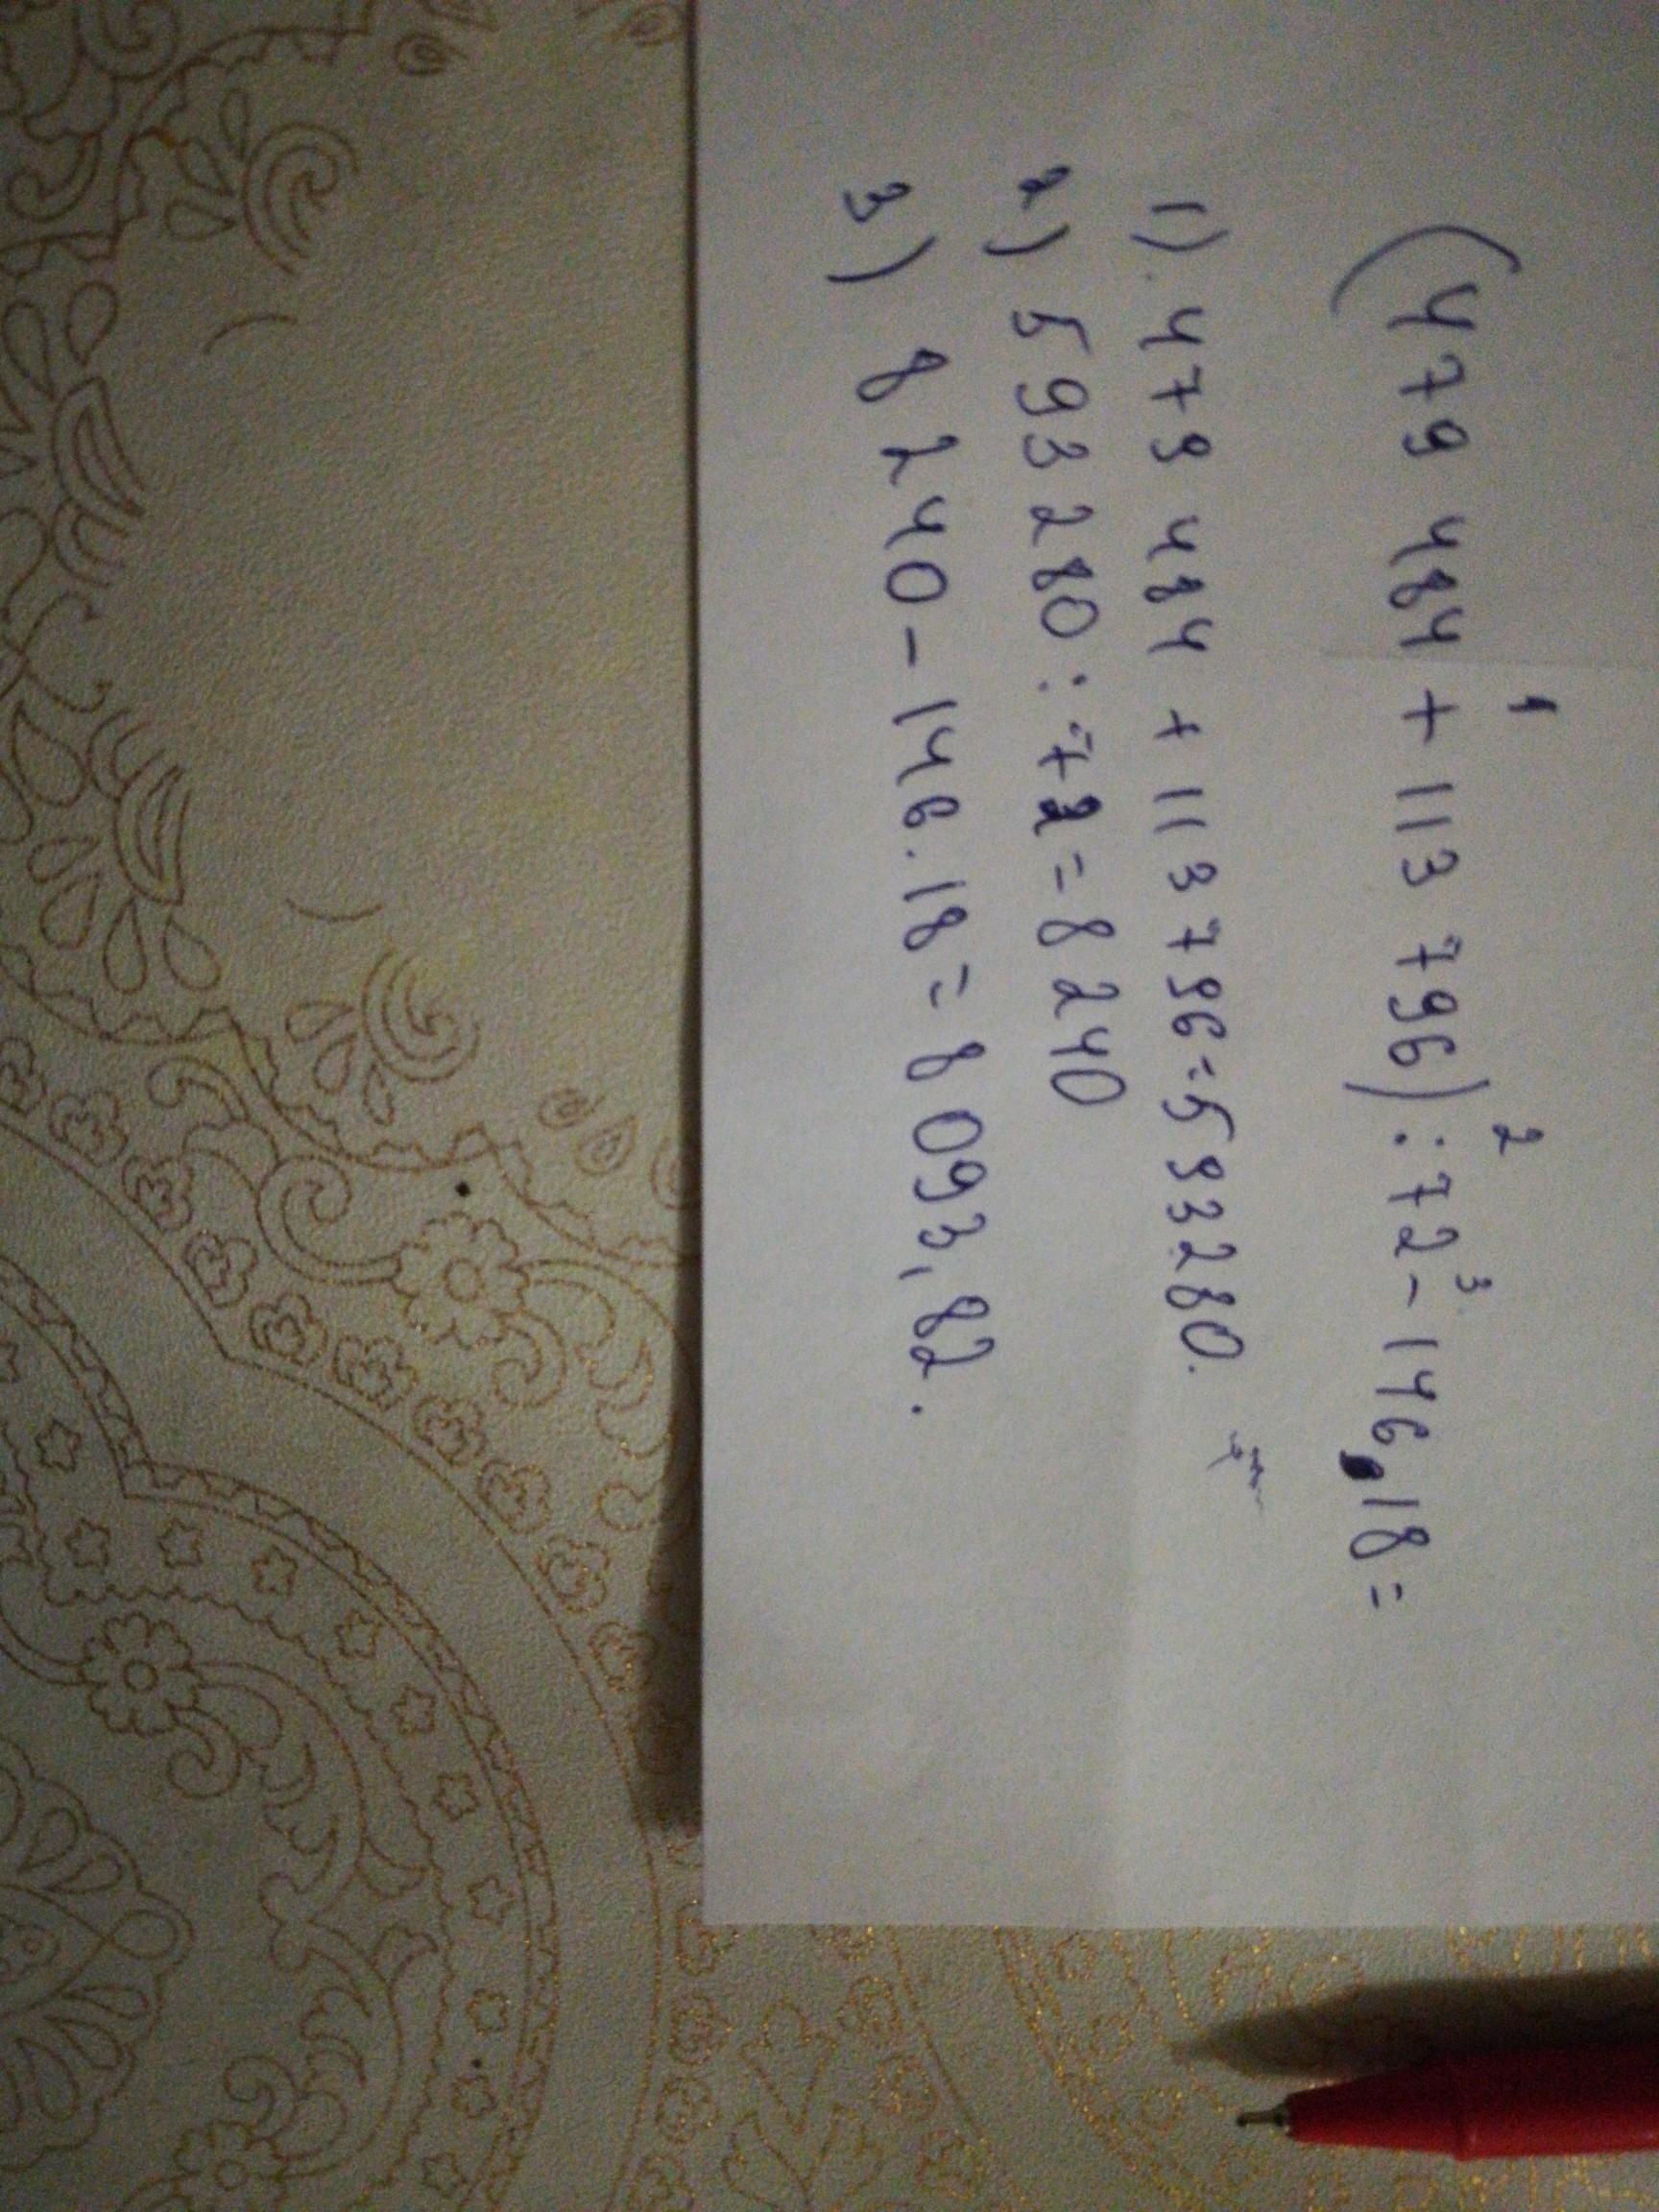 1 2 3
(479 484 + 113 796) : 72 - 146,18 =
1). 479 484 + 113 796 = 593 280.
2) 593 280 : 72 = 8 240
3) 8 240 - 146.18 = 8 093,82.